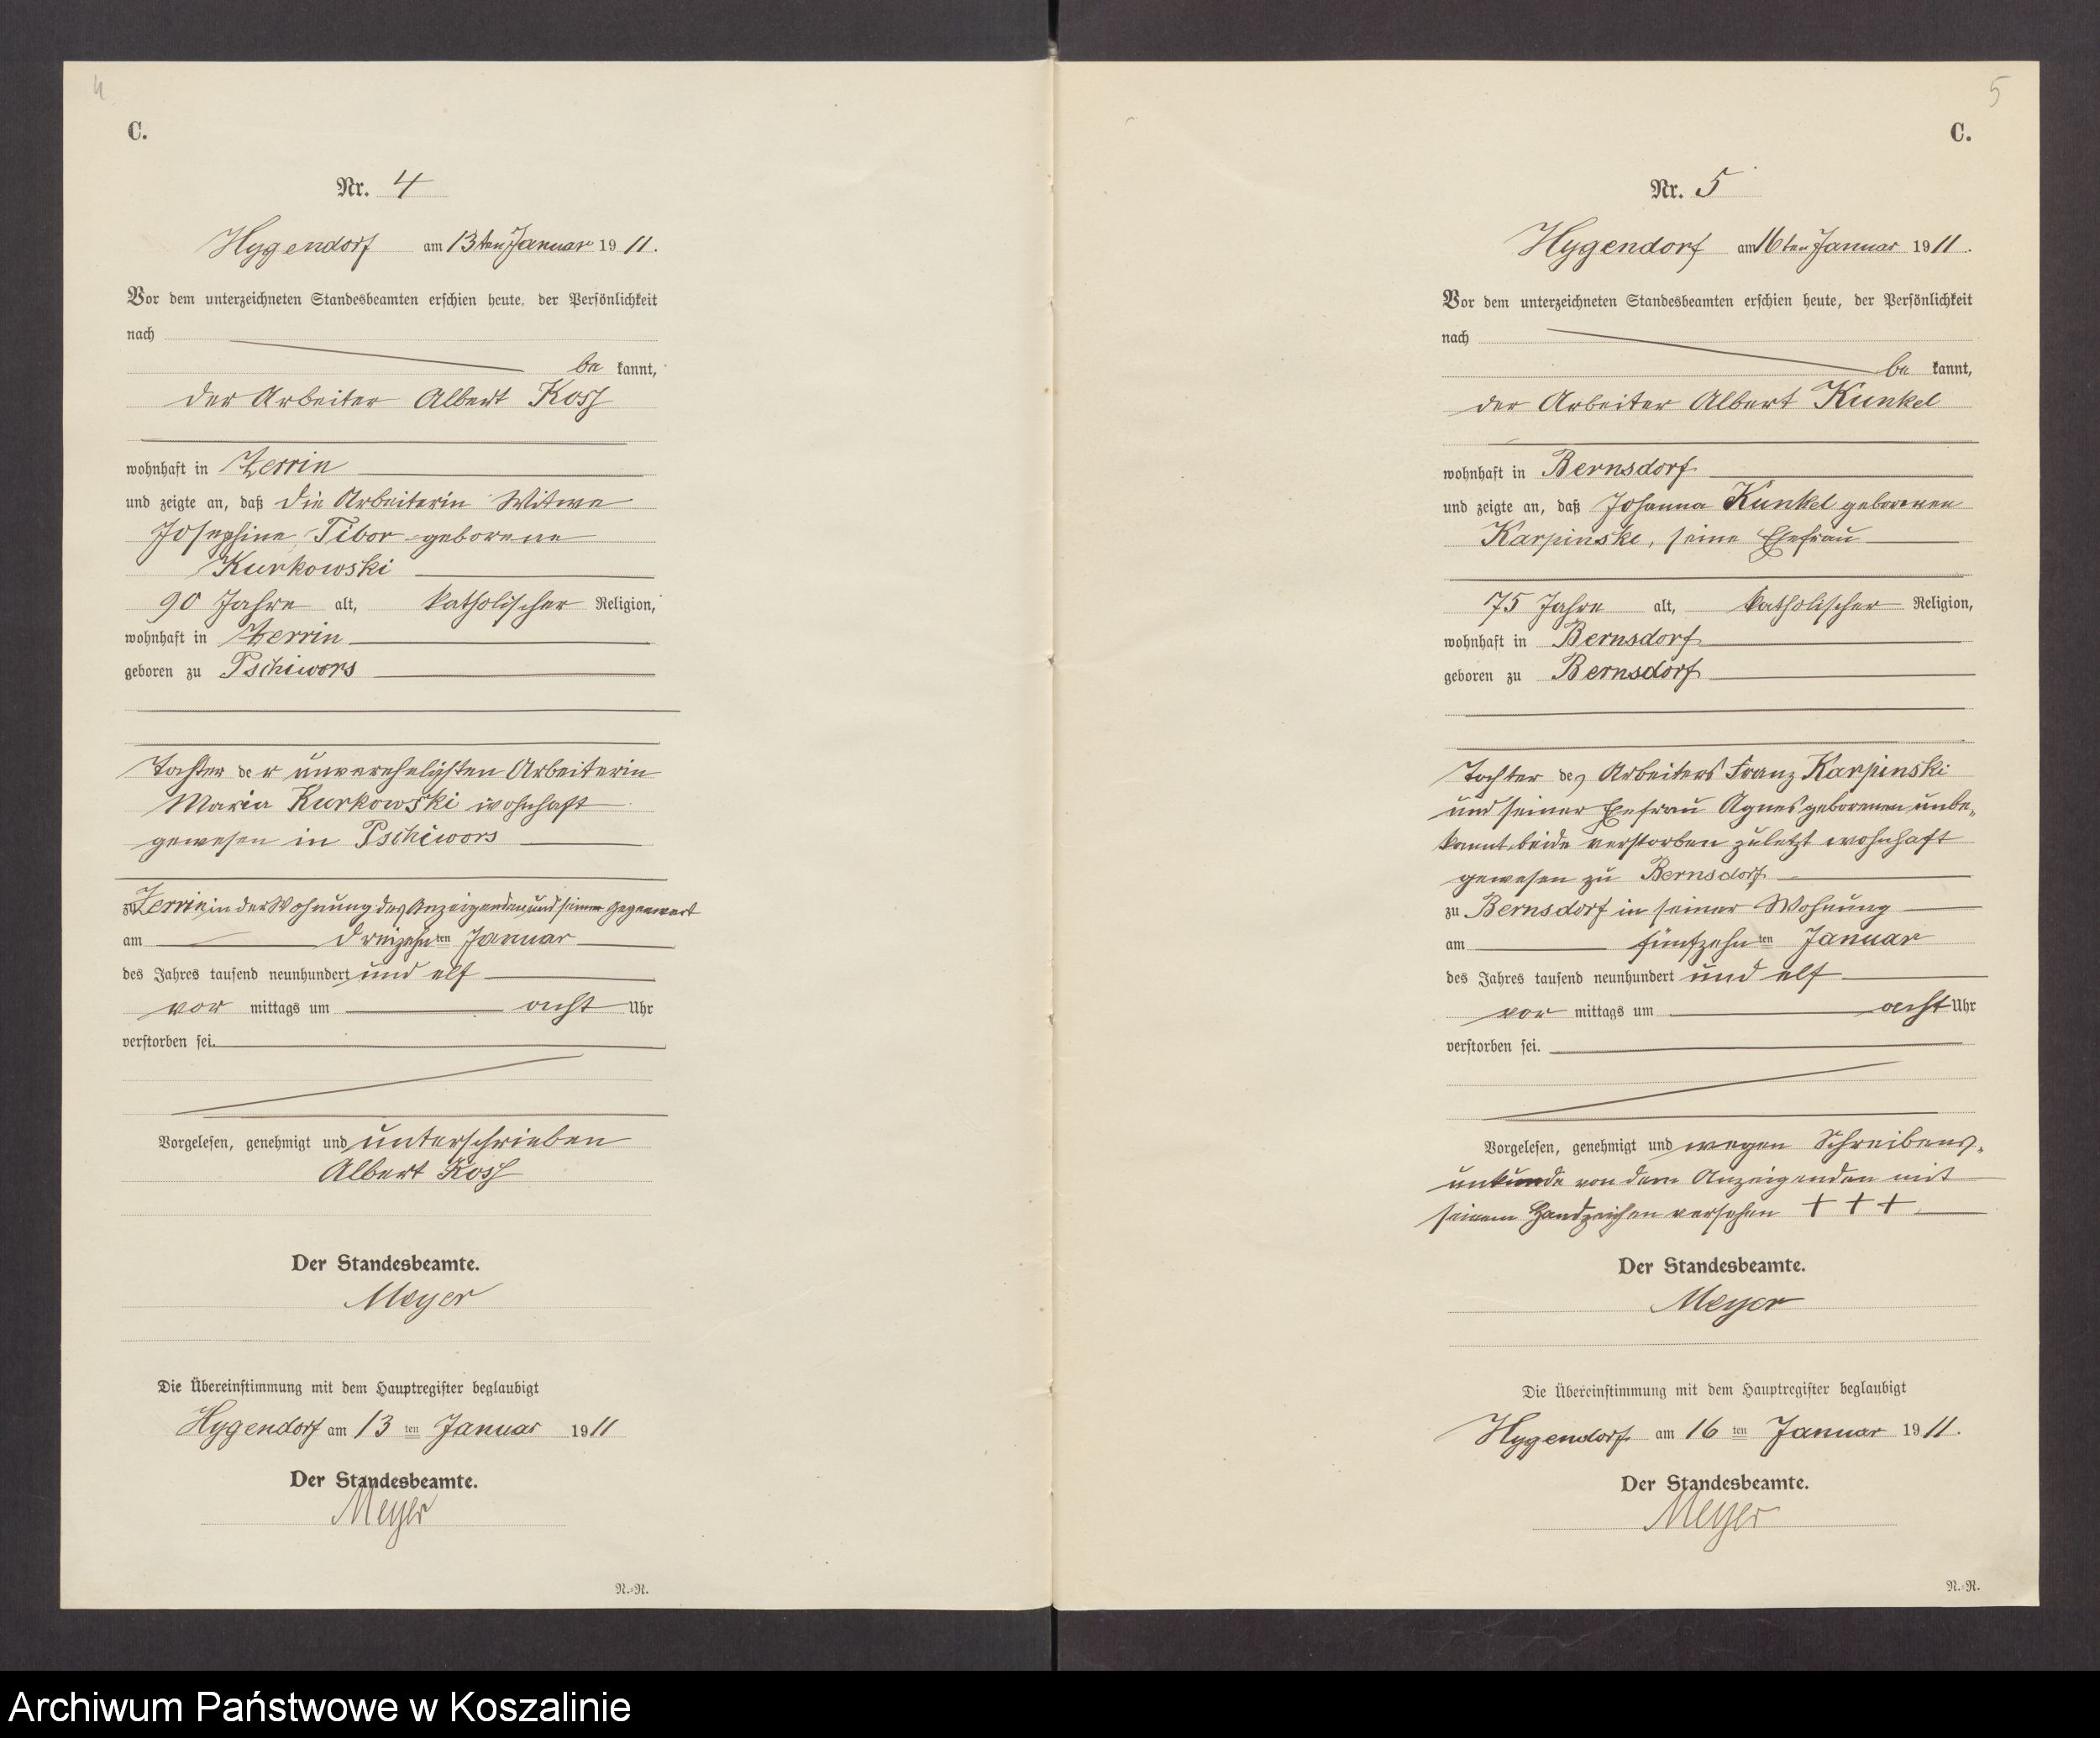 4
C.
Nr. 4
Hygendorf am 13ten Januar 1911.
Vor dem unterzeichneten Standesbeamten erschien heute, der Persönlichkeit
nach
be kannt,
der Arbeiter Albert Koss
wohnhaft in Zerrin
und zeigte an, daß die Arbeiterin Witwe
Josephine Tibor geborene
Kurkowski
90 Jahre alt, katholischer Religion,
wohnhaft in Zerrin
geboren zu Pschiwors
Tochter der unverehelichten Arbeiterin
Maria Kurkowski wohnhaft
gewesen in Pschiwors
zu Zerrin in der Wohnung des Anzeigenden und seiner Gegenwart
am dreizehnten Januar
des Jahres tausend neunhundert und elf
vor mittags um acht Uhr
verstorben sei.
Vorgelesen, genehmigt und unterschrieben
Albert Koss
Der Standesbeamte.
Meyer
Die Übereinstimmung mit dem Hauptregister beglaubigt
Hygendorf am 13 ten Januar 1911
Der Standesbeamte.
Meyer
N.-R.
5
C.
Nr. 5
Hygendorf am 16ten Januar 1911.
Vor dem unterzeichneten Standesbeamten erschien heute, der Persönlichkeit
nach
be kannt,
der Arbeiter Albert Kunkel
wohnhaft in Bernsdorf
und zeigte an, daß Johanna Kunkel geborenen
Karpinske, seine Ehefrau
75 Jahre alt, katholischer Religion,
wohnhaft in Bernsdorf
geboren zu Bernsdorf
Tochter des Arbeiters Franz Karpinski
und seiner Ehefrau Agnes geborenen unbe-
kannt beide verstorben zuletzt wohnhaft
gewesen zu Bernsdorf
zu Bernsdorf in seiner Wohnung
am fünfzehnten Januar
des Jahres tausend neunhundert und elf
vor mittags um acht Uhr
verstorben sei.
Vorgelesen, genehmigt und wegen Schreibens-
unkunde von dem Anzeigenden mit
seinem Handzeichen versehen + + +
Der Standesbeamte.
Meyer
Die Übereinstimmung mit dem Hauptregister beglaubigt
Hygendorf am 16 ten Januar 1911.
Der Standesbeamte.
Meyer
N.-R.
Archiwum Państwowe w Koszalinie